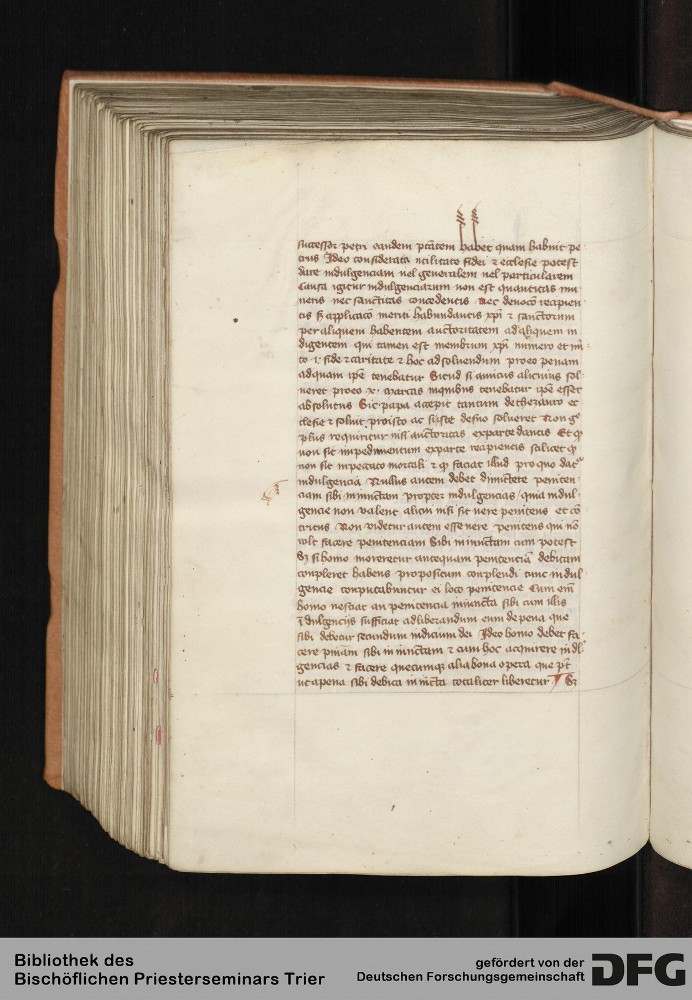 successor petri eandem ptatem habet quam habuit pe
trus Ideo considerata utilitate fidei et ecclesie potest
dare indulgenciam uel generalem uel particularem
Causa igitur indulgenciarum non est quantitas mu
neris nec sanctitas concedentis Nec deuoco recipien
tis sz applicaco meriti habundantis xpi et sanctorum
per aliquem habentem auctoritatem ad aliquem in
digentem qui tamen est membrum xpi numero et mi
to .i. fide et caritate et hoc ad soluendum pro eo penam
ad quam ipe tenebatur Sicud si amicus alicuius sol
ueret pro eo x. marcas in quibus tenebatur ipe esset
absolutus Sic papa accepit tantum de thezauro ec
clesie et soluit pro isto ac si iste de suo solueret Non g
plus requiritur nisi auctoritas ex parte dantis Et q
non sit impedimentum ex parte recipientis scilicet q
non sit in peccato mortali et q faciat illud pro quo dat
indulgencia Nullus autem debet dimittere peniten
ciam sibi iniunctam propter indulgencias quia indul
gencie non valent alicui nisi sit uere penitens et co
tritus Non videtur autem esse uere penitens qui no
wlt facere penitenciam sibi iniunctam cum potest
Sz si homo moreretur antequam penitencia debitam
conpleret habens propositum conplendi tunc indul
gencie conputabuntur ei loco penitencie Cum eni
homo nesciat an penitencia iniuncta sibi cum illis
indulgencijs sufficiat ad liberandum eum de pena que
sibi debetur secundum iudicium dei Ideo homo debet fa
cere pniam sibi iniunctam et cum hoc acquirere indl
gencias et facere quecumqz alia bona opera que pt
ut a pena sibi debita iniucta totaliter liberetur ¶ Sz
Bibliothek des
Bischöflichen Priesterseminars Trier
gefördert von der
Deutschen Forschungsgemeinschaft
DFG